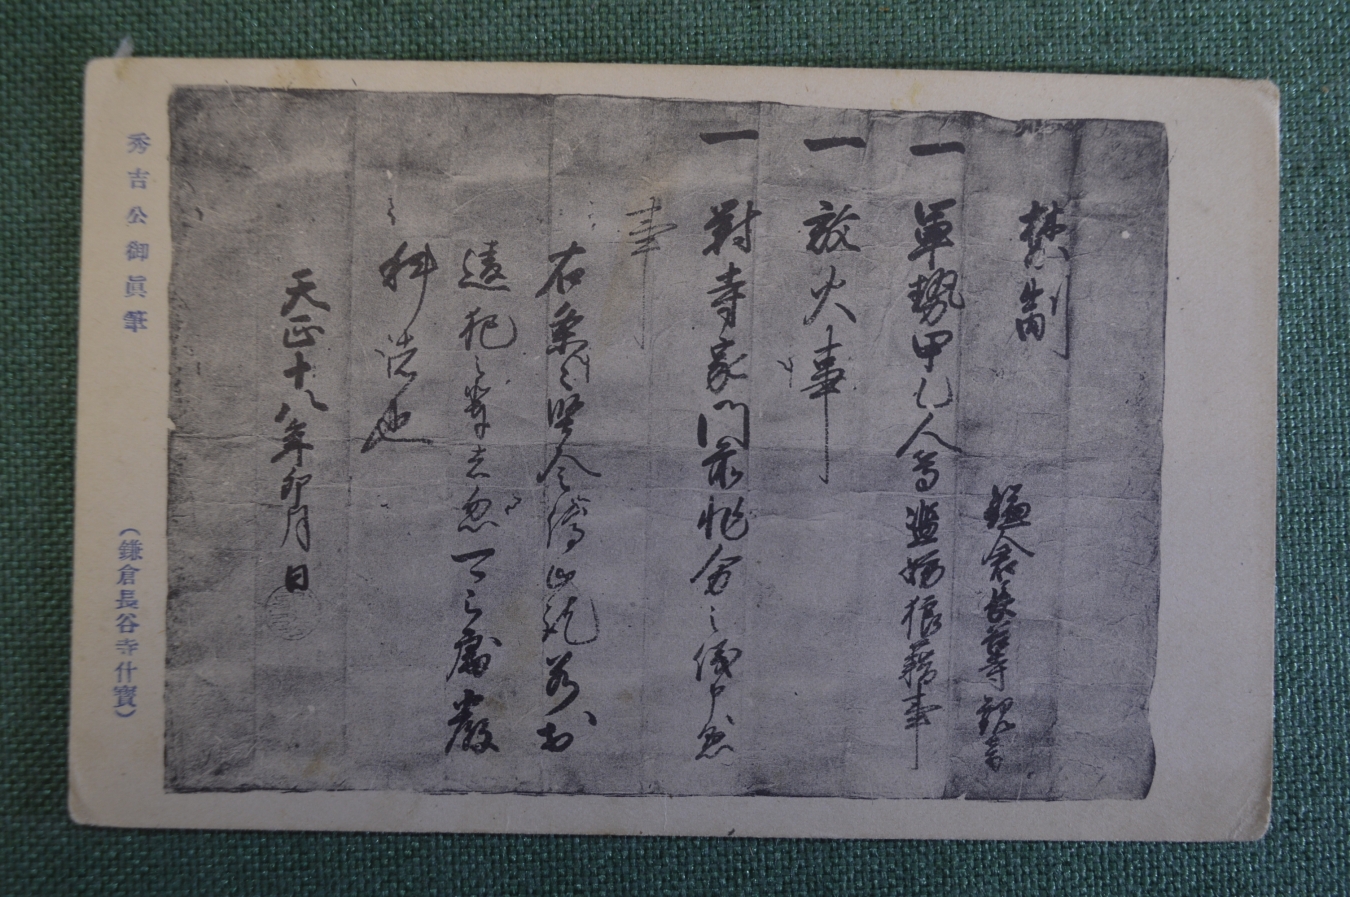 禁制
鎌倉長谷寺観音
一 軍勢甲乙人等濫妨狼藉事
一 放火事
一 對寺家門前非分之儀申懸
事
右条々堅令停止訖若於
違犯之輩者忽可被處嚴
科者也
天正十八年卯月日
秀吉公御眞筆
(鎌倉長谷寺什寳)